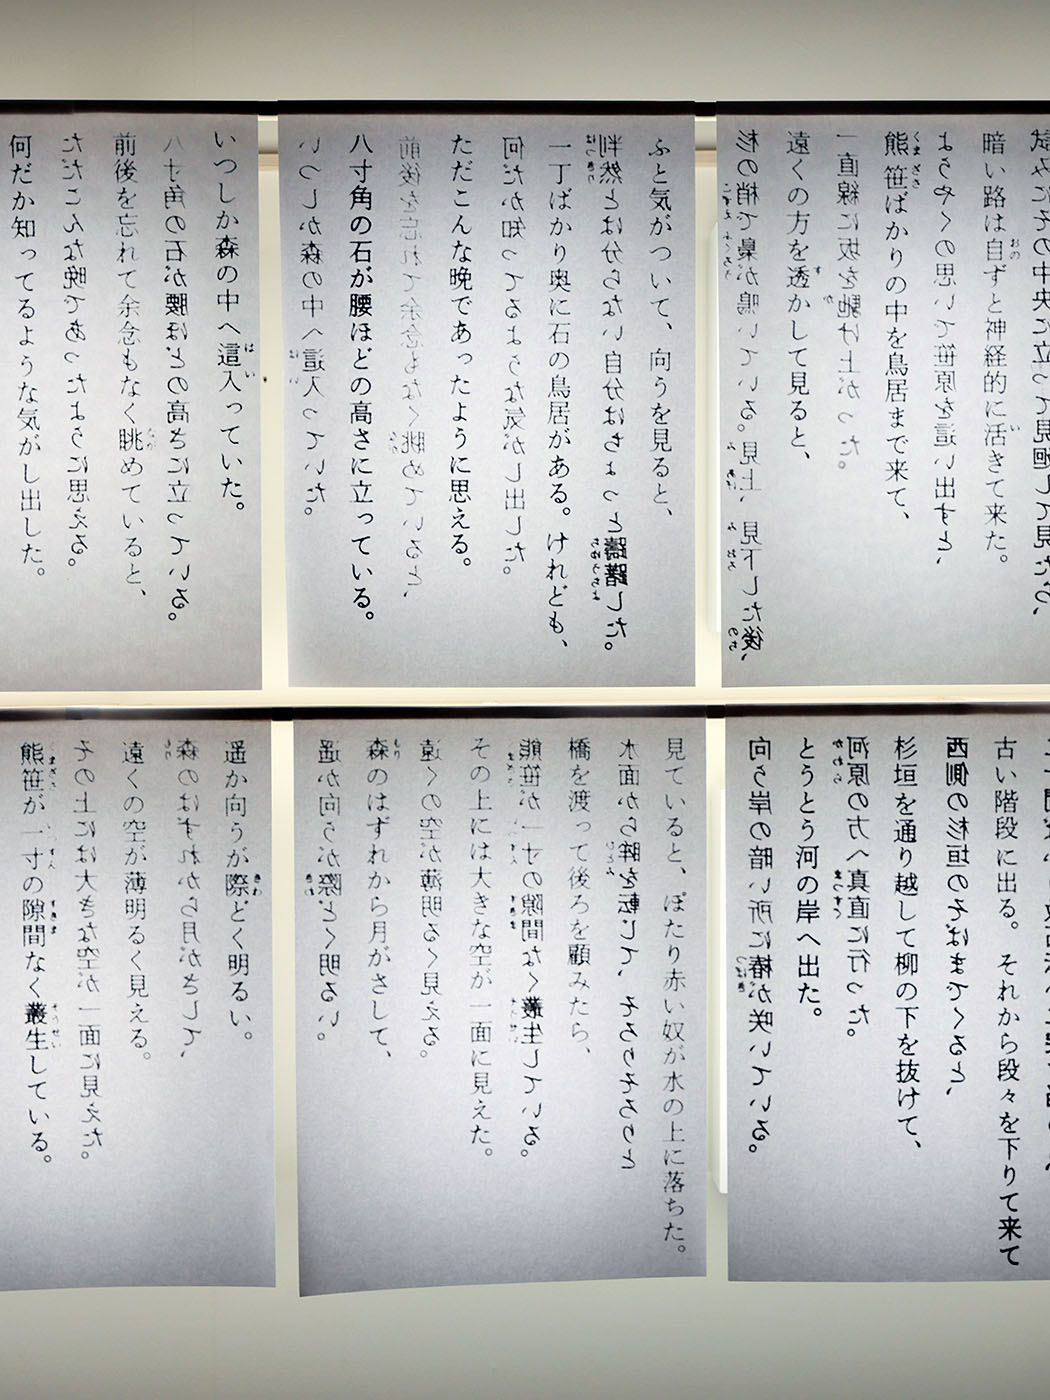 試みにその中央に立って見廻して見たら、
暗い路は自ずと神経的に活きて来た。
ようやくの思いで笹原を這い出すと、
熊笹ばかりの中を鳥居まで来て、
一直線に坂を馳け上がった。
遠くの方を透かして見ると、
杉の梢で梟が鳴いている。見上、見下した後、
ふと気がついて、向うを見ると、
判然とは分らない自分はちょっと躊躇した。
一丁ばかり奥に石の鳥居がある。けれども、
何だか知ってるような気がし出した。
ただこんな晩であったように思える。
前後を忘れて余念もなく眺めていると、
八寸角の石が腰ほどの高さに立っている。
いつしか森の中へ這入っていた。
いつしか森の中へ這入っていた。
八寸角の石が腰ほどの高さに立っている。
前後を忘れて余念もなく眺めていると、
ただこんな晩であったように思える。
何だか知ってるような気がし出した。
古い階段に出る。それから段々を下りて来て
西側の杉垣のそばまでくると、
杉垣を通り越して柳の下を抜けて、
河原の方へ真直に行った。
とうとう河の岸へ出た。
向う岸の暗い所に椿が咲いている。
見ていると、ぽたり赤い奴が水の上に落ちた。
水面から眸を転じて、そろりそろりと
橋を渡って後ろを顧みたら、
熊笹が一寸の隙間なく叢生している。
その上には大きな空が一面に見えた。
遠くの空が薄明るく見える。
森のはずれから月がさして、
遥か向うが際どく明るい。
遥か向うが際どく明るい。
森のはずれから月がさして、
遠くの空が薄明るく見える。
その上には大きな空が一面に見えた。
熊笹が一寸の隙間なく叢生している。